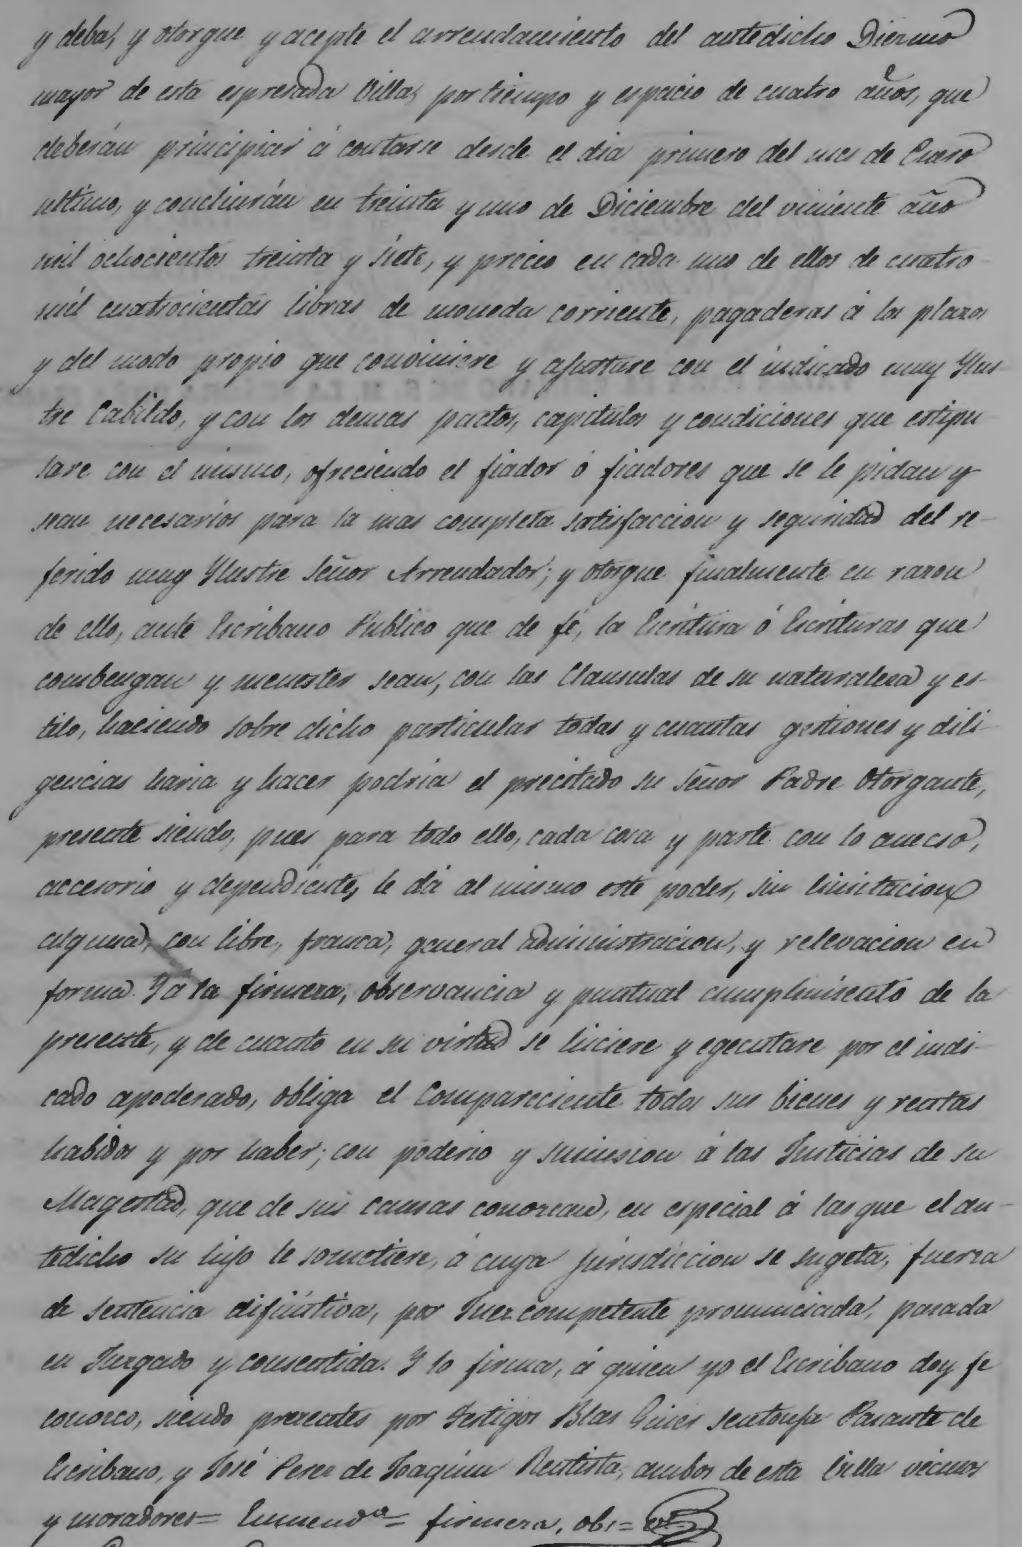 y deba, y otorgue y acepte el arrendamiento del antedicho Diezmo
mayor de esta espresada Villa, por tiempo y espacio de cuatro años, que
deberán principiar á contarse desde el dia primero del mes de Enero
ultimo, y concluirán en treinta y uno de Diciembre del viniente año
mil ochocientos treinta y siete, y precio en cada uno de ellos de cuatro
mil cuatrocientas libras de moneda corriente, pagaderas á los plazos
y del modo propio que conviniere y ajustare con el indicado muy Ylus-
tre Cabildo, y con los demas pactos, capitulos y condiciones que estipu
lare con el mismo, ofreciendo el fiador ó fiadores que se le pidan y
sean necesarios para la mas completa satisfaccion y seguridad del re-
ferido muy Ylustre Señor Arrendador; y otorgue finalmente en razon
de ello, ante Escribano Publico que de fé, la Escritura ó Escrituras que
combengan y menester sean, con las Clausulas de su naturaleza y es-
tilo, haciendo sobre dicho particular todas y cuantas gestiones y dili-
gencias haria y hacer podria el precitado su Señor Padre Otorgante,
presente siendo, pues para todo ello, cada cosa y parte con lo anecso,
accesorio y dependiente, le dá al mismo este poder, sin limitacion
alguna, con libre, franca, general administracion, y relevacion en
forma. Y á la firmeza, observancia y puntual cumplimiento de la
presente, y de cuanto en su virtud se hiciere y egecutare por el indi-
cado apoderado, obliga el Compareciente todos sus bienes y rentas
habidos y por haber; con poderio y sumision á las Justicias de su
Magestad, que de sus causas conozcan, en especial á las que el an-
tedicho su hijo le sometiere, á cuya jurisdiccion se sugeta, fuerza
de sentencia difinitiva, por Juez competente pronunciada, pasada
en Juzgado y consentida. Y lo firma, á quien yo el Escribano doy fe
conozco, siendo presentes por Testigos Blas Giner Sentonja Pasante de
Escribano, y José Perez de Joaquin Rentista, ambos de esta Villa vecinos
y moradores= Enmendº= firmeza, ob,=